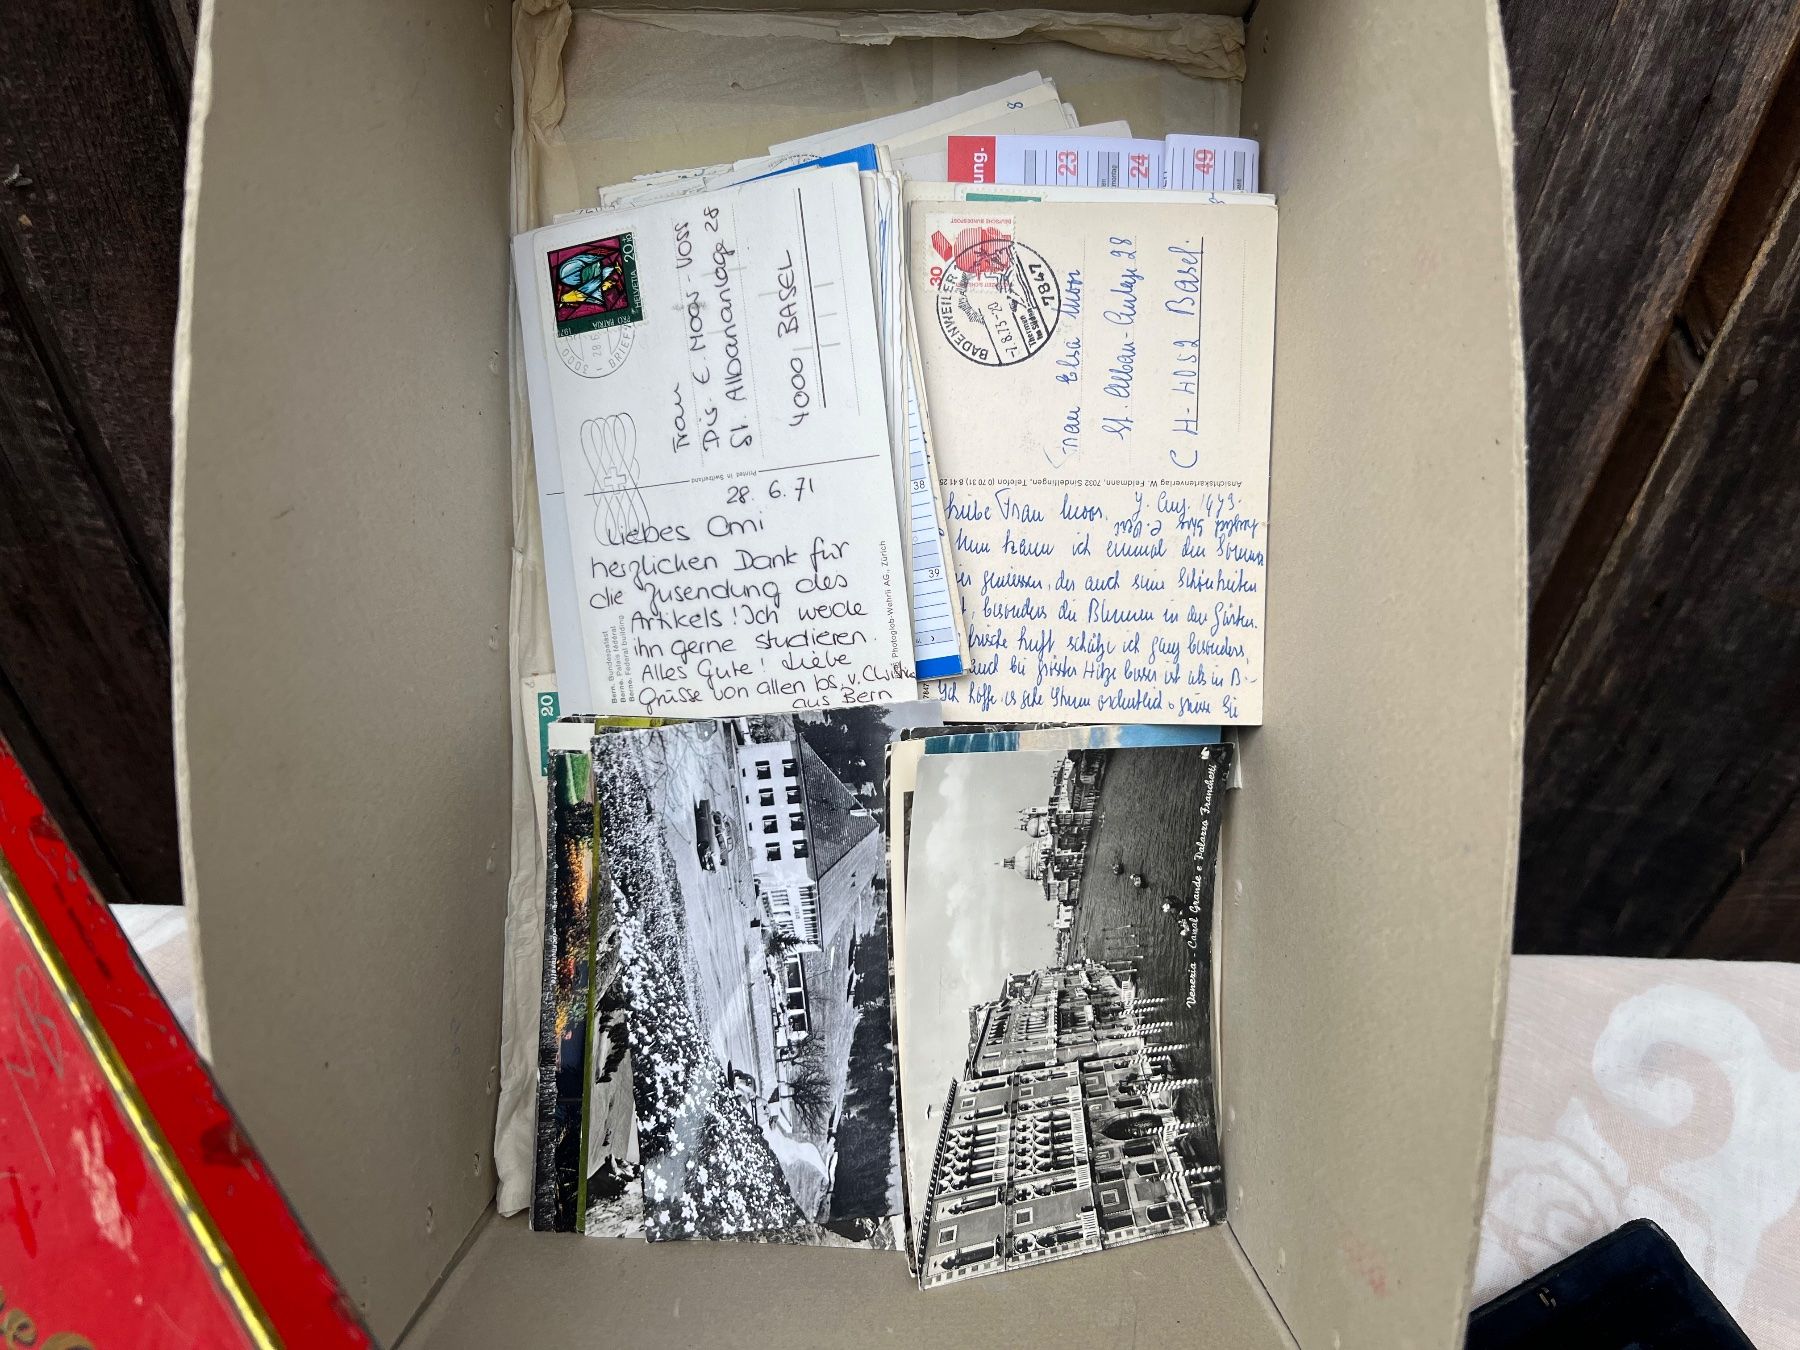 28. 6. 71
Liebes Omi
herzlichen Dank für
die Zusendung des
Artikels! Ich werde
ihn gerne studieren.
Alles Gute! Liebe
Grüsse von allen bs. v.
aus Bern
Frau
E. Moor - Voss
St. Albananlage 28
4000 BASEL
Printed in Switzerland
Bern. Bundespalast
Berne. Palais fédéral
Berne. Federal building
Photoglob-Wehrli AG., Zürich
HELVETIA 20
PRO PATRIA
3000
BRIEF
20
38
39
8
ung.
23
24
49
DEUTSCHE BUNDESPOST
30
BADENWEILER
-1.8.73-20
7847
Frau Elsa Moor
St. Alban-Anlage 28
CH-4052 Basel.
Ansichtskartenverlag W. Feldmann, 7032 Sindelfingen, Telefon (0 70 31) 8 41 25
Liebe Frau Moor, Aug. 1973.
Nun kann ich einmal den Sommer
geniessen, der auch seine Schönheiten
besonders die Blumen in den Gärten.
frische Luft schätze ich ganz besonders,
auch bei grösster Hitze besser ist als in B.
Ich hoffe, es gehe Ihnen ordentlich & grüsse Sie
7847
Venezia - Canal Grande e Palazzo Franchetti